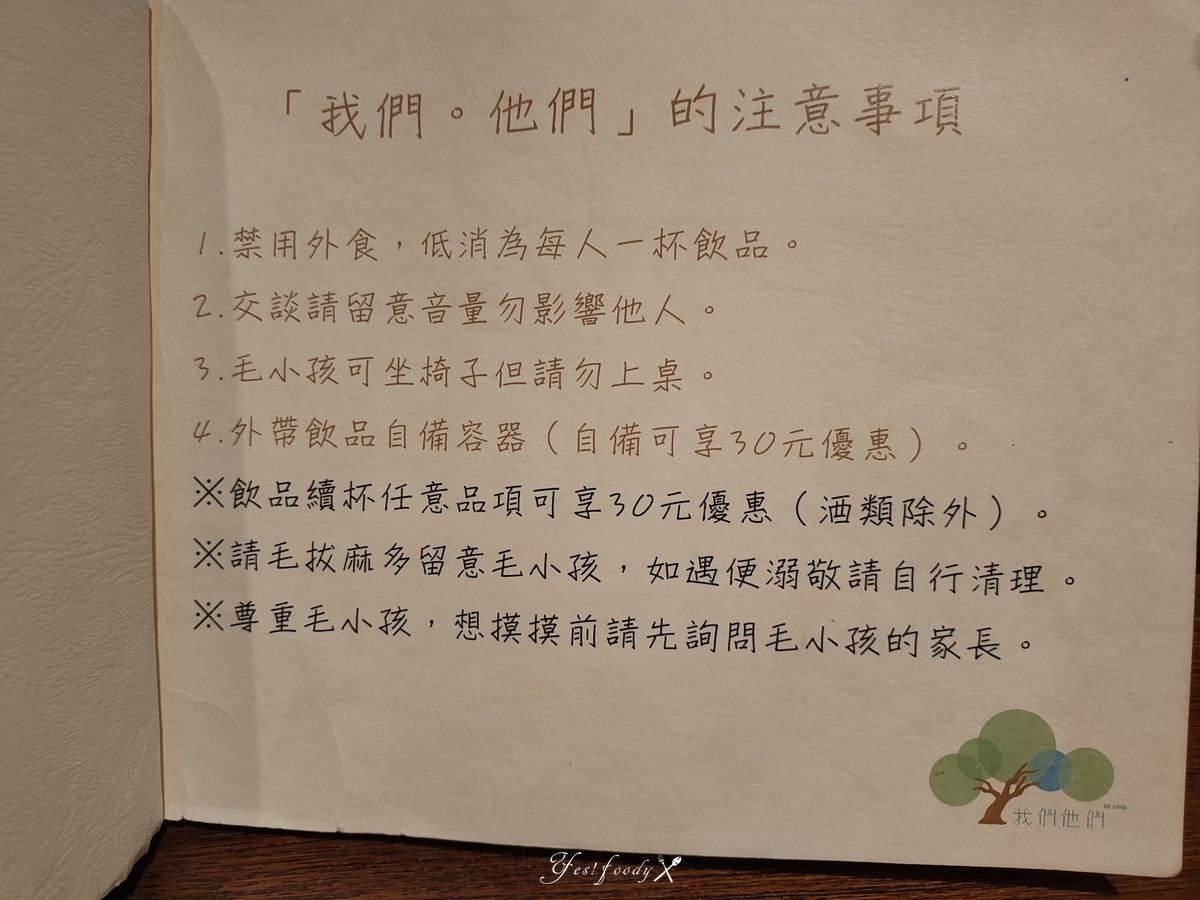 「我們。他們」的注意事項
1.禁用外食，低消為每人一杯飲品。
2.交談請留意音量勿影響他人。
3.毛小孩可坐椅子但請勿上桌。
4.外帶飲品自備容器（自備可享30元優惠）。
※飲品續杯任意品項可享30元優惠（酒類除外）。
※請毛拔麻多留意毛小孩，如遇便溺敬請自行清理。
※尊重毛小孩，想摸摸前請先詢問毛小孩的家長。
我們他們
Yes!foody